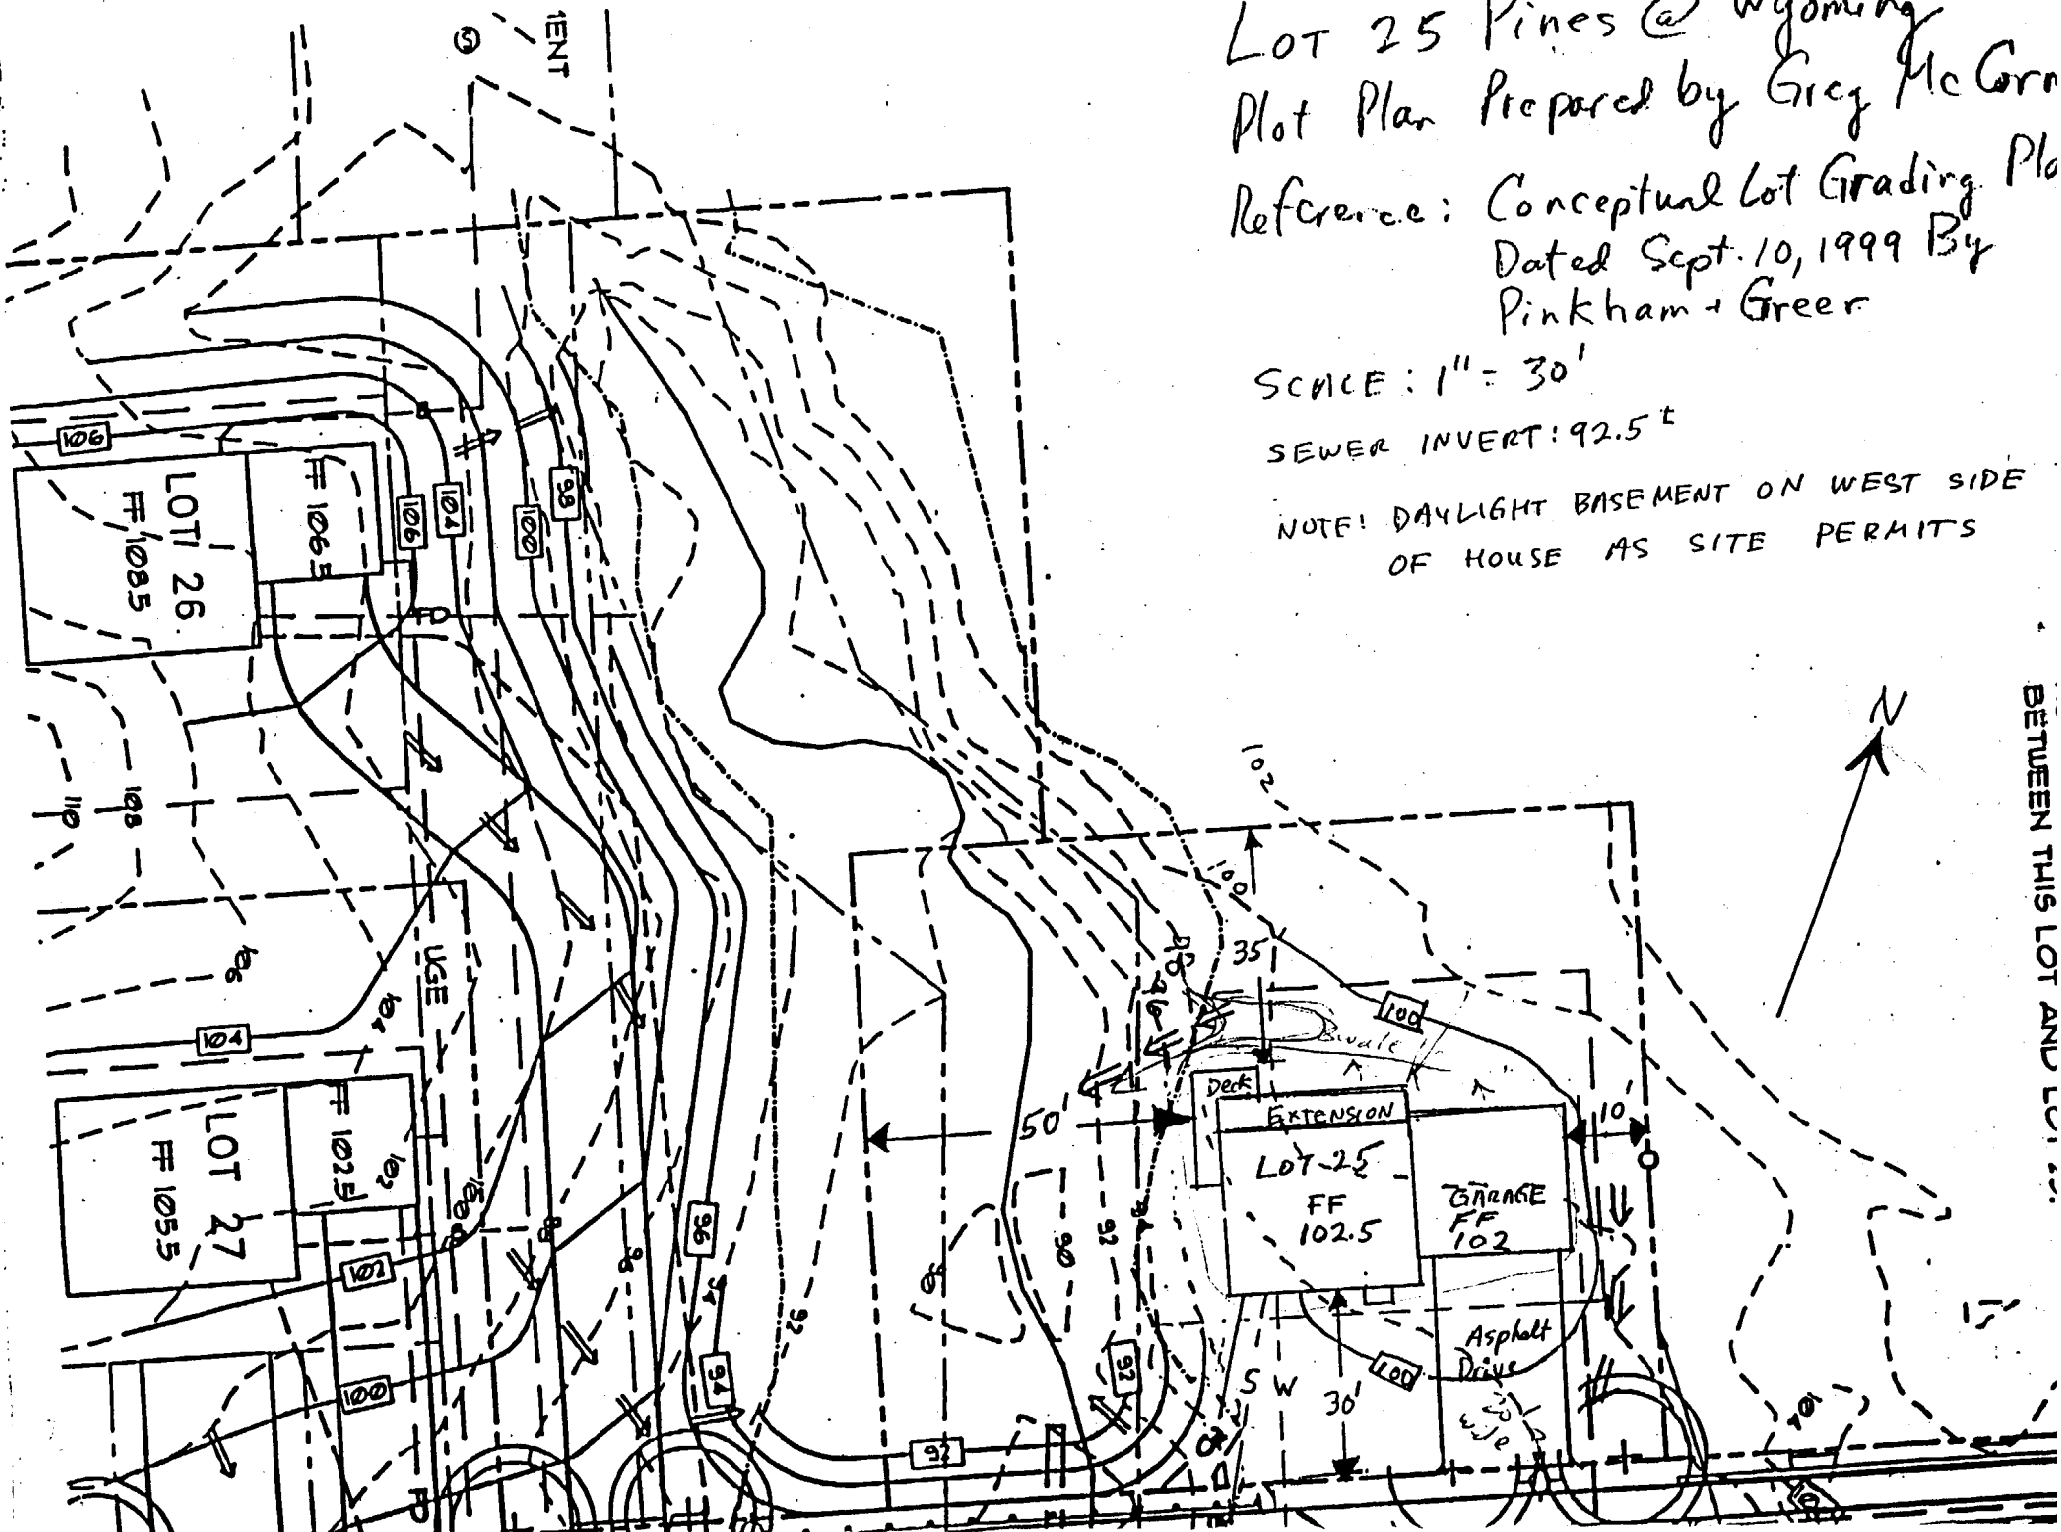 LOT 25 Pines @ Wyoming
Plot Plan Prepared by Greg McCorm
Reference: Conceptual Lot Grading Pla
Dated Sept. 10, 1999 By
Pinkham + Greer
SCALE: 1" = 30'
SEWER INVERT: 92.5 ±
NOTE: DAYLIGHT BASEMENT ON WEST SIDE
OF HOUSE AS SITE PERMITS
N
BETWEEN THIS LOT AND LOT
S
ENT
106
LOT 26
FF 108.5
FF 106.5
106
104
100
98
FD
110
108
106
104
UGE
104
LOT 27
FF 105.5
FF 102.5
102
100
98
96
102
100
96
94
94
92
92
90
90
92
94
92
102
100
98
96
35
100
Swale
Deck
EXTENSION
50'
10'
LOT-25
FF
102.5
GARAGE
FF
102
Asphalt
Drive
100
S W
30'
20'
wide
104
FD